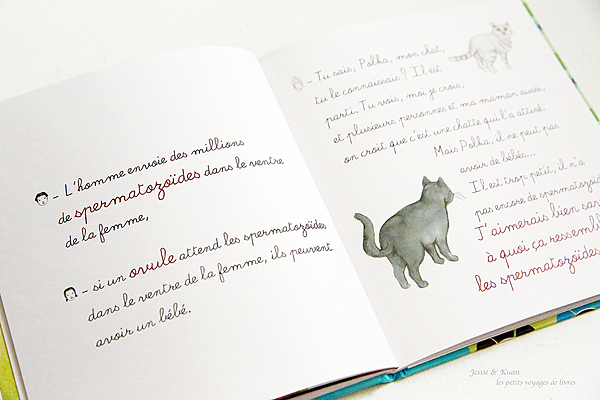 – L'homme envoie des millions
de spermatozoïdes dans le ventre
de la femme,
– si un ovule attend les spermatozoïdes
dans le ventre de la femme, ils peuvent
avoir un bébé.
– Tu sais, Polka, mon chat,
tu le connaissais ? Il est
parti. Tu vois, moi je crois,
et plusieurs personnes et ma maman aussi,
on croit que c'est une chatte qui l'a attiré.
Mais Polka, il ne peut pas
avoir de bébés...
Il est trop petit, il n'a
pas encore de spermatozoïd
J'aimerais bien sav
à quoi ça ressembl
les spermatozoïdes
Jessie & Kuan
les petits voyages de livres